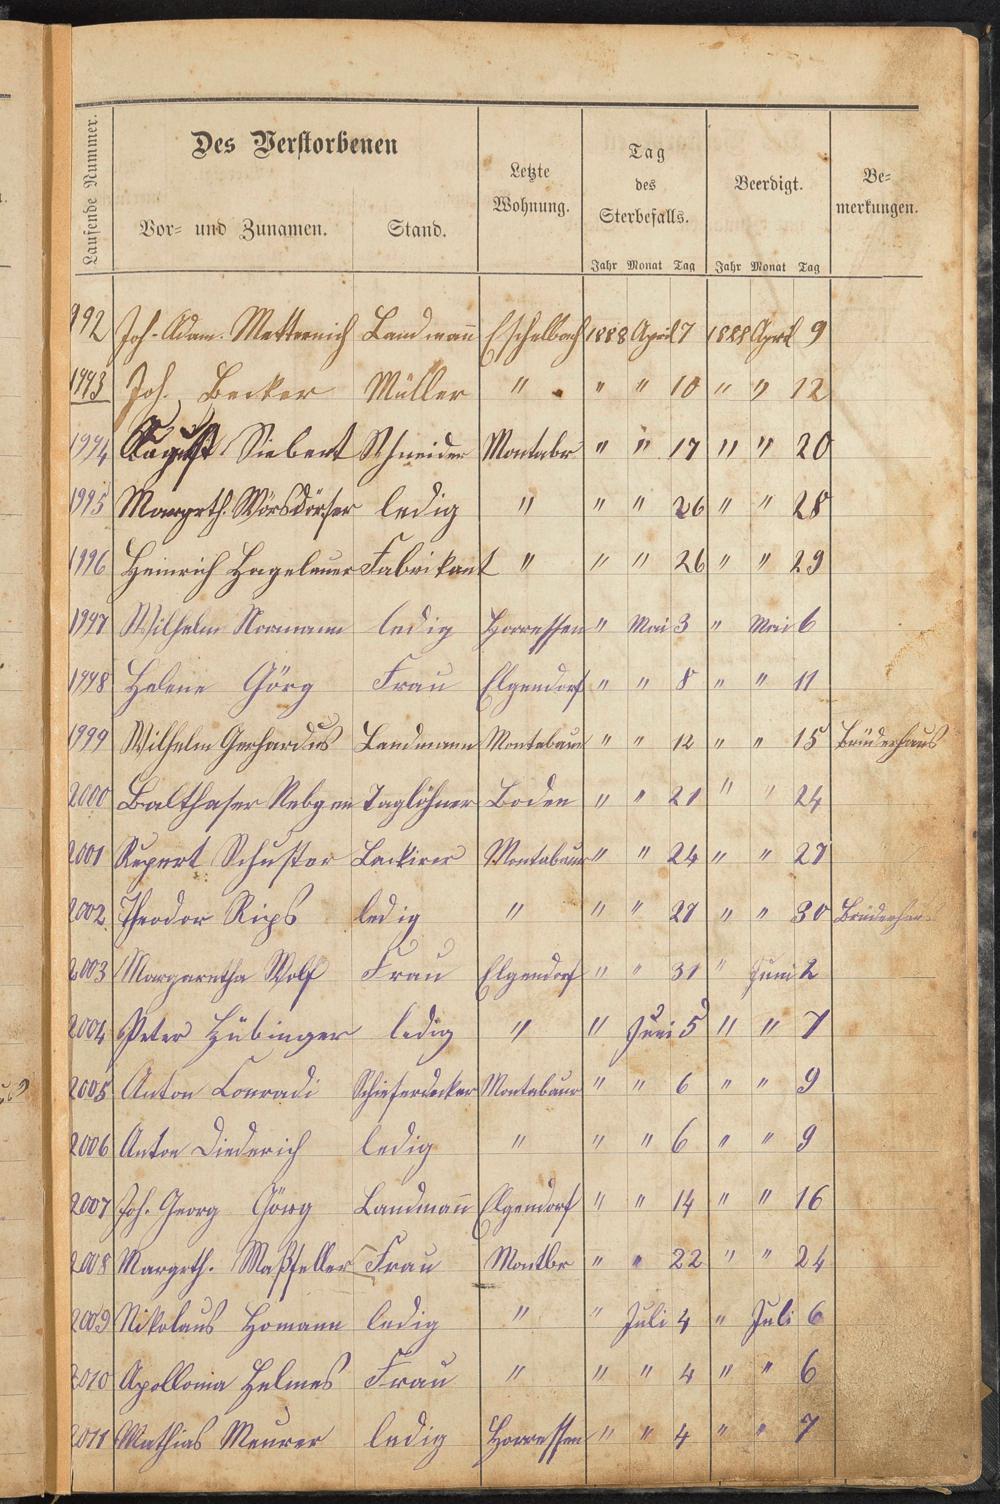 Laufende Nummer.
Des Verstorbenen
Vor= und Zunamen.
Stand.
Letzte
Wohnung.
Tag
des
Sterbefalls.
Jahr Monat Tag
Beerdigt.
Jahr Monat Tag
Be=
merkungen.
992 Joh. Adam. Metternich Landmañ Eschelbach 1888 April 7 1888 April 9
1993 Joh. Becker Müller " " " 10 " " 12
1994 August Siebert Schneider Montabr " " 17 " " 20
1995 Margrth. Wörsdörfer ledig " " " 26 " " 28
1996 Heinrich Hagelauer Fabrikant " " " 26 " " 29
1997 Wilhelm Normann ledig Horressen " Mai 3 " Mai 6
1998 Helene Görg Frau Elgendorf " " 8 " " 11
1999 Wilhelm Gerhardus Landmann Montabaur " " 12 " " 15 Brüderhaus
2000 Balthaser Nebgen Taglöhner Boden " " 21 " " 24
2001 Rupert Schuster Lackirer Montabaur " " 24 " " 27
2002 Theodor Rips ledig " " " 27 " " 30 Brüderhaus
2003 Margaretha Wolf Frau Elgendorf " " 31 " Juni 2
2004 Peter Hübinger ledig " " Juni 5 " " 7
2005 Anton Conradi Schieferdecker Montabaur " " 6 " " 9
2006 Anton Diederich ledig " " " 6 " " 9
2007 Joh. Georg Görg Landmañ Elgendorf " " 14 " " 16
2008 Margrth. Maßfeller Frau Montbr " " 22 " " 24
2009 Nikolaus Homann ledig " " Juli 4 " Juli 6
2010 Apollonia Helmes Frau " " " 4 " " 6
2011 Mathias Meurer ledig Horressen " " 4 " " 7